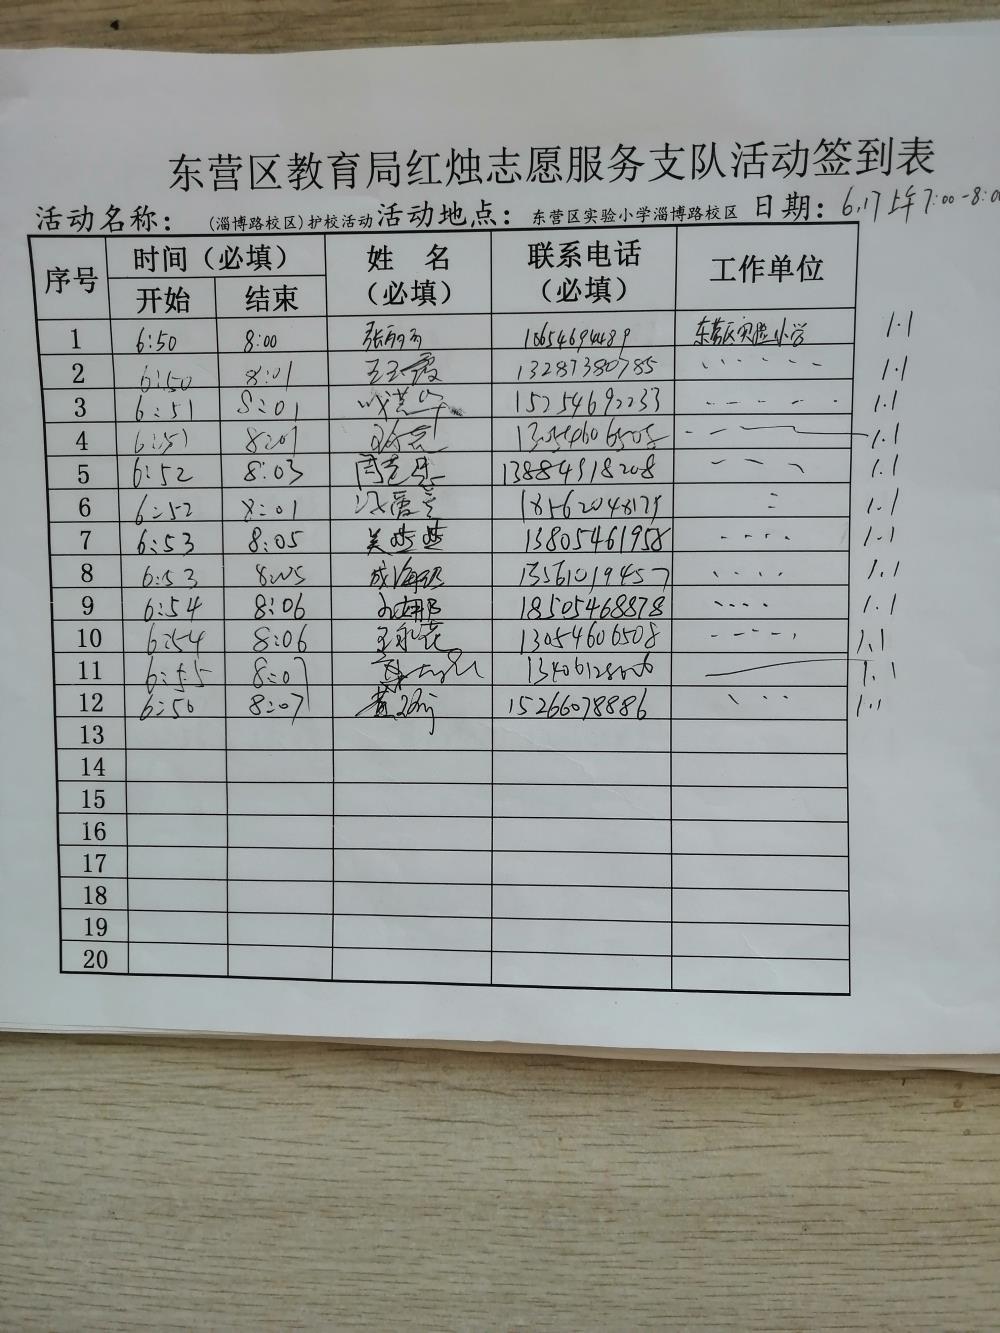 东营区教育局红烛志愿服务支队活动签到表
活动名称：（淄博路校区）护校活动 活动地点：东营区实验小学淄博路校区 日期：6.17上午7:00-8:00
序号 时间（必填） 姓 名（必填） 联系电话（必填） 工作单位
开始 结束
1 6:50 8:00 18654694489 东营区实验小学 1.1
2 6:50 8:01 王玉霞 13287380785 1.1
3 6:51 8:01 15254692233 1.1
4 6:51 8:01 13054606508 1.1
5 6:52 8:03 13884918208 1.1
6 6:52 8:01 18562048179 1.1
7 6:53 8:05 吴燕燕 13805461958 1.1
8 6:53 8:05 成海 13561019457 1.1
9 6:54 8:06 18505468878 1.1
10 6:54 8:06 王永花 13054606508 1.1
11 6:55 8:07 1.1
12 6:50 8:07 15266078886 1.1
13
14
15
16
17
18
19
20